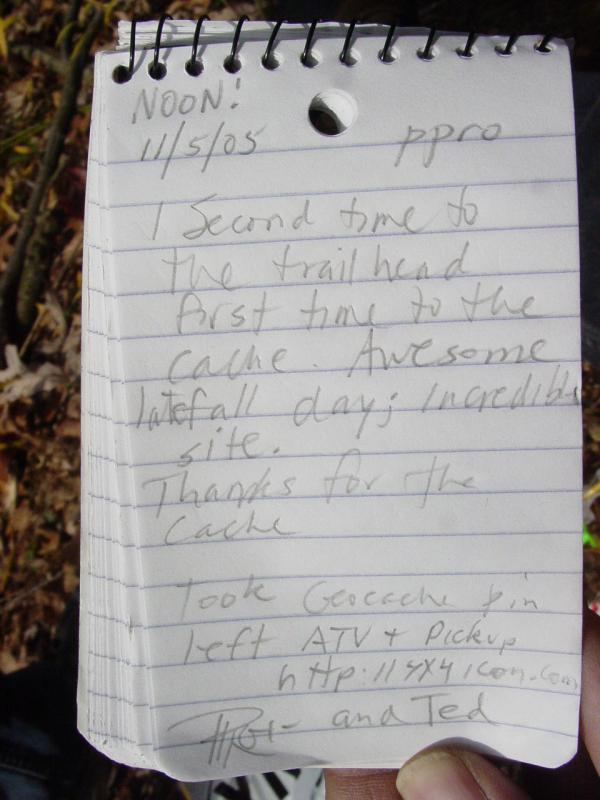 NOON!
11/5/05 ppro
1 Second time to
the trail head
first time to the
cache. Awesome
late fall day; incredible
site.
Thanks for the
Cache
Took Geocache pin
left ATV + Pickup
http://4x4icon.com
and Ted